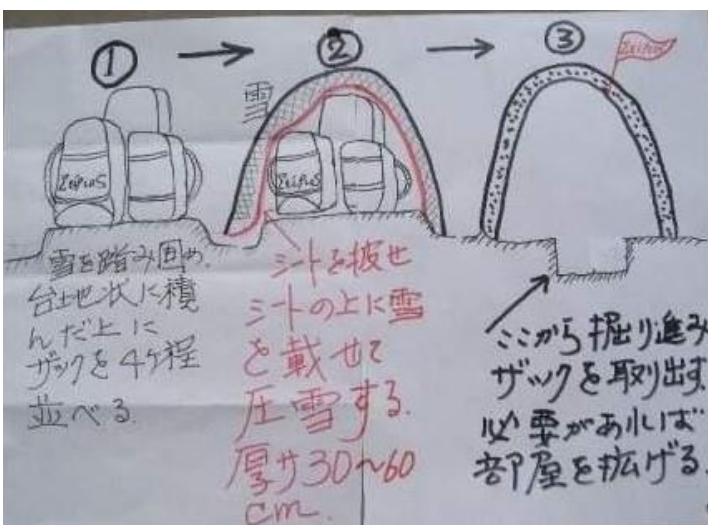 ①
②
③
Zeipus
雪
Zeipus
Zeipus
雪を踏み固め、
台地状に積
んだ上に
ザックを4ケ程
並べる
シートを披せ
シートの上に雪
を載せて
圧雪する.
厚サ30~60
cm.
ここから掘り進み
ザックを取り出す.
必要があれば
部屋を拡げる.